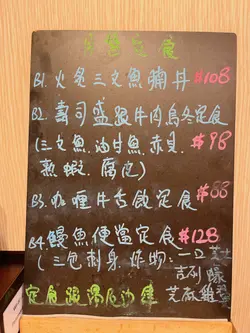 B1. 火炙三文魚腩丼 $108
B2. 壽司盛跟牛肉烏冬定食
(三文魚.油甘魚.赤貝. $98
熟蝦.腐皮)
B3. 咖喱牛舌飯定食 $88
B4. 鰻魚便當定食 $128
(三包刺身.炸物:一口芝士
吉列
芝麻雞翼
定食跟湯及沙律